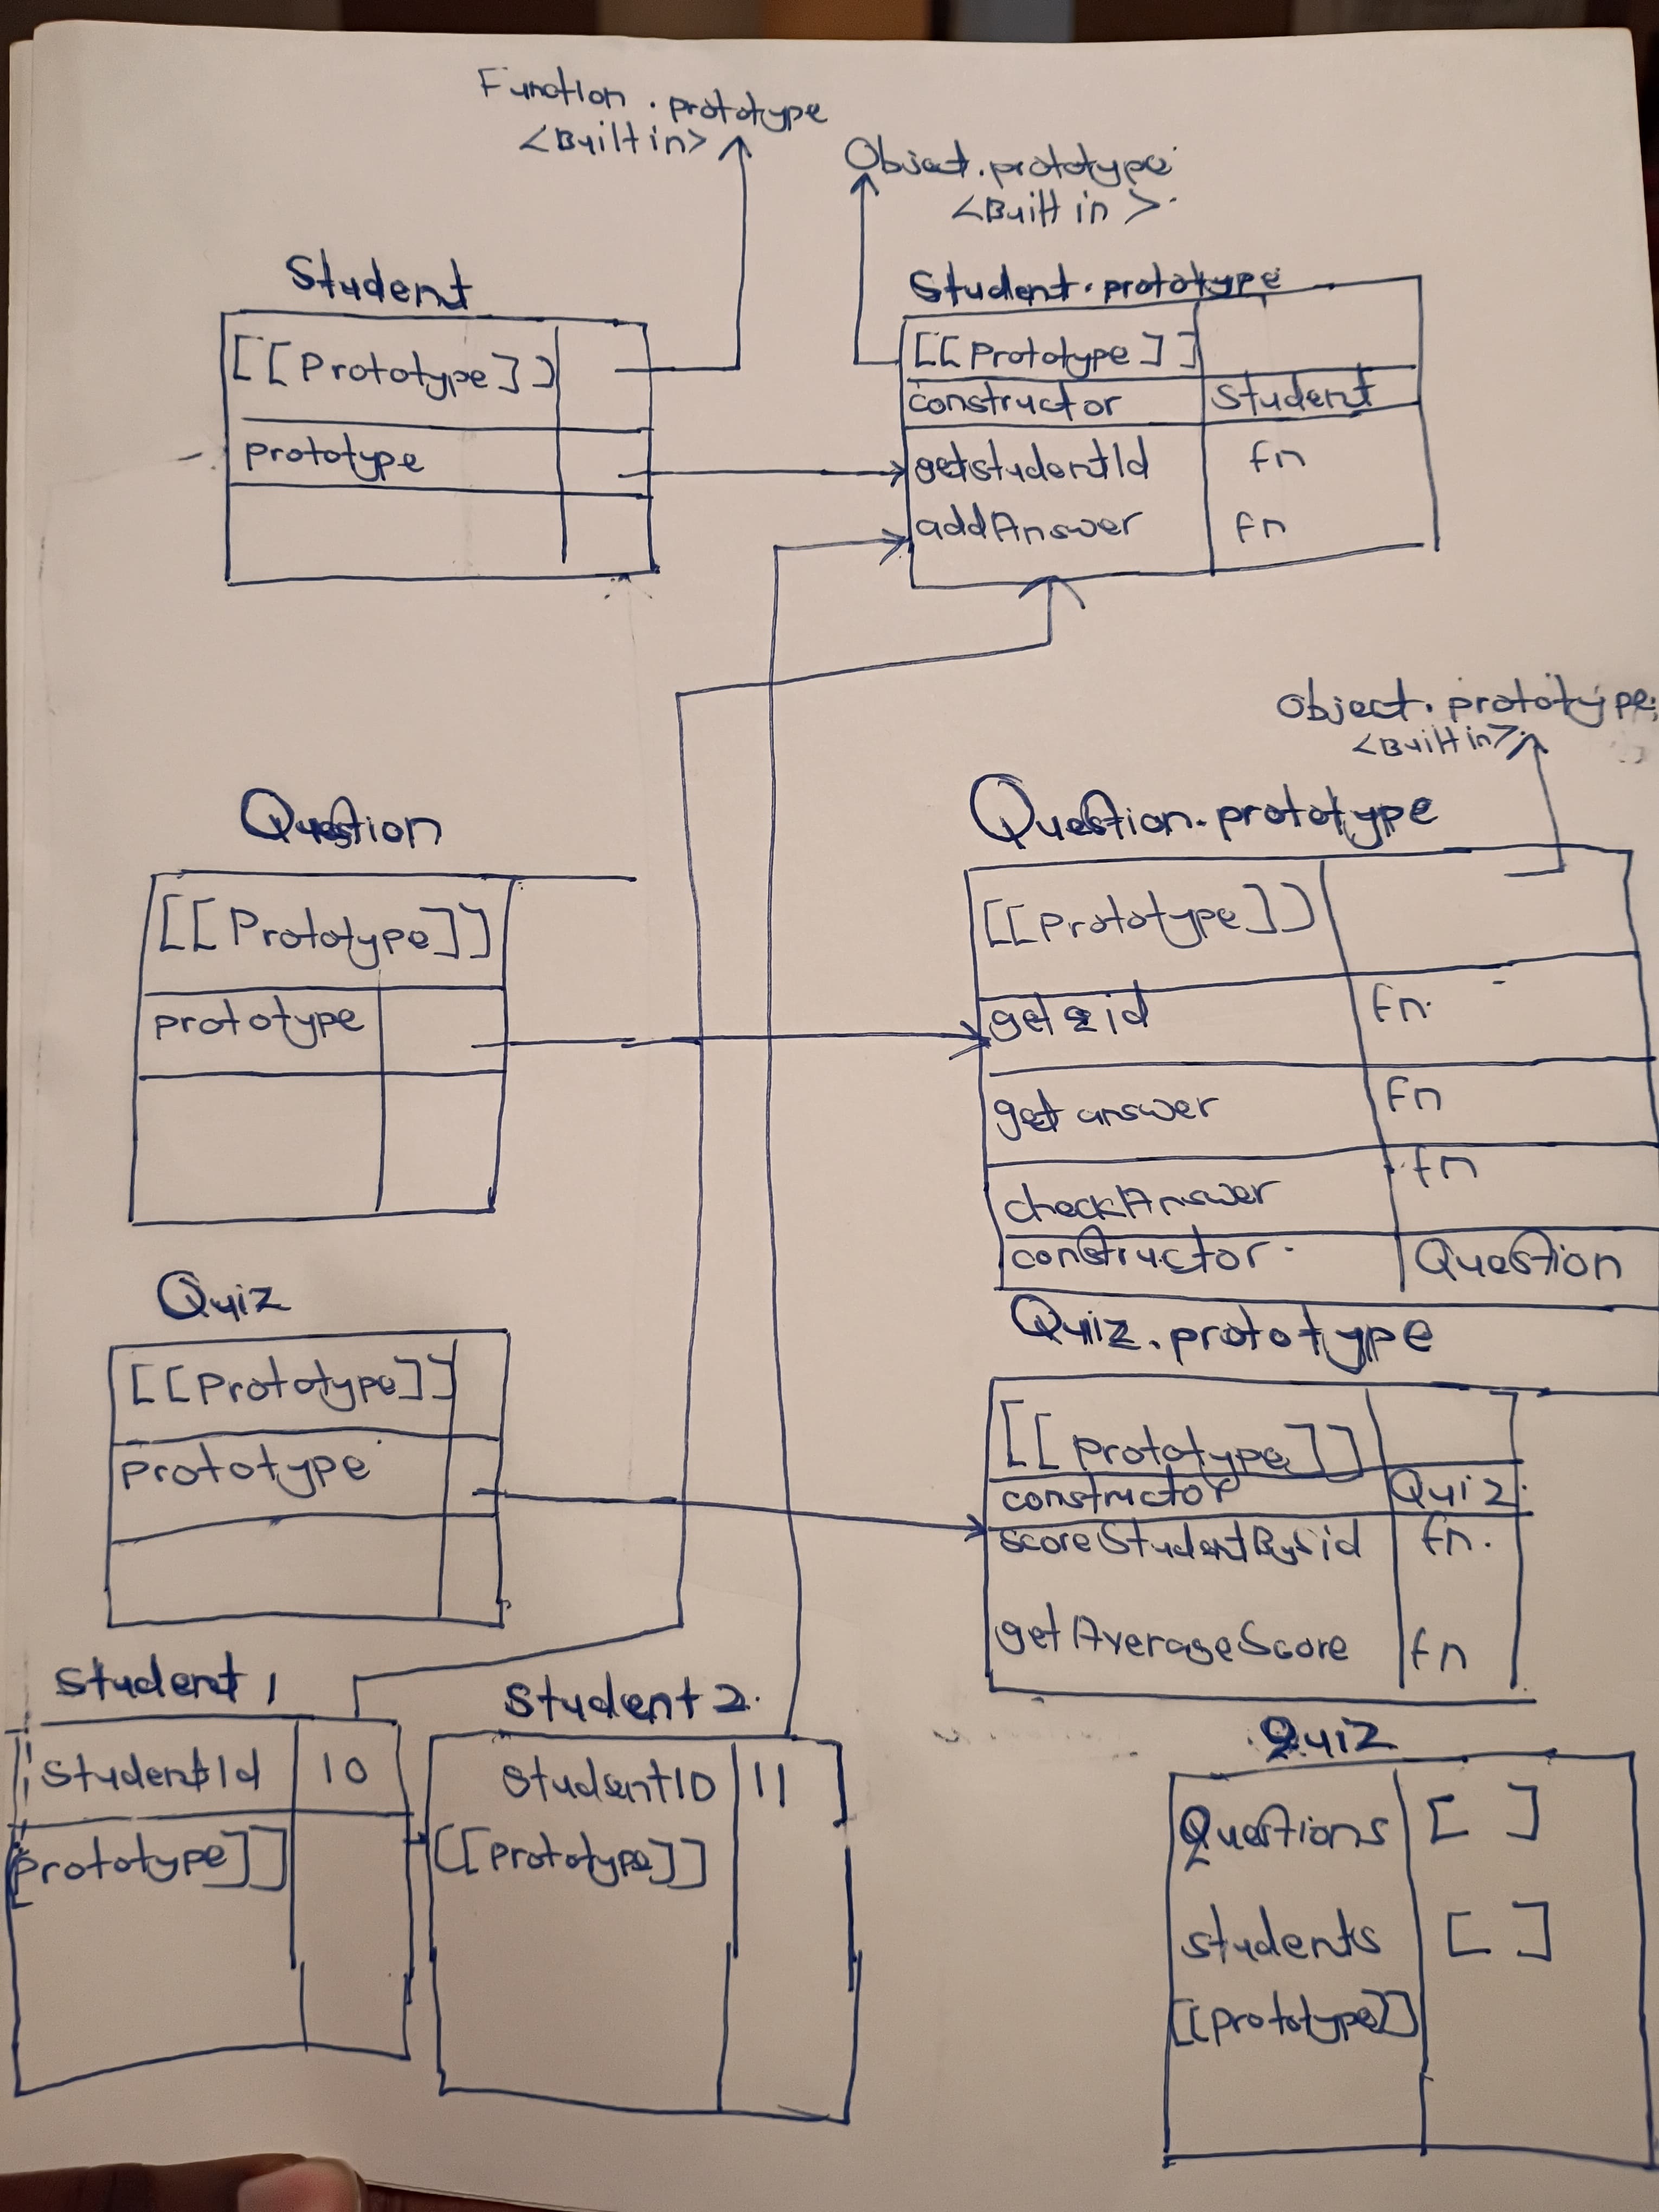 Function.prototype
<Built in>
Object.prototype
<Built in>
Student
[[Prototype]]
prototype
Student.prototype
[[Prototype]]
constructor Student
getstudentId fn
addAnswer fn
Object.prototype
<Built in>
Question
[[Prototype]]
prototype
Question.prototype
[[Prototype]]
fn
get answer fn
checkAnswer fn
constructor Question
Quiz
[[Prototype]]
prototype
Quiz.prototype
[[prototype]]
constructor Quiz
scoreStudentBySid fn
getAverageScore fn
Student 1
StudentId 10
prototype]]
Student 2
Student10 11
[[Prototype]]
Quiz
Questions [ ]
students [ ]
[[prototype]]